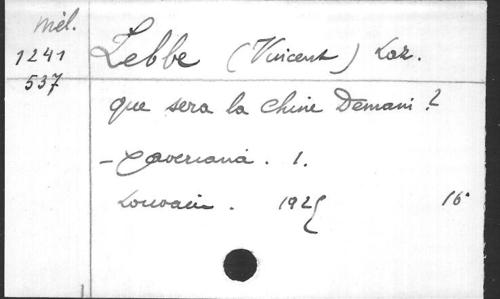 Mél.
1241
537
Lebbe (Vincent) Laz.
que sera la Chine Demain ?
– Xaveriana. 1.
Louvain. 1925 16°